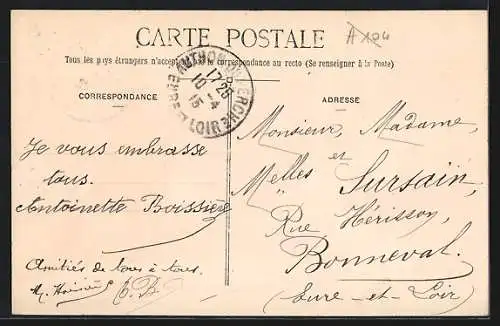 A 104
CARTE POSTALE
Tous les pays étrangers n'acceptent pas la correspondance au recto (Se renseigner à la Poste)
AUTHON-DU-PERCHE
17 25
10 -4
15
EURE-ET-LOIR
CORRESPONDANCE
ADRESSE
Je vous embrasse
tous.
Antoinette Boissière
Amitiés de tous à tous.
C.B
Monsieur, Madame,
et
Melles Sursain,
Rue Hérisson,
Bonneval.
(Eure-et-Loir)